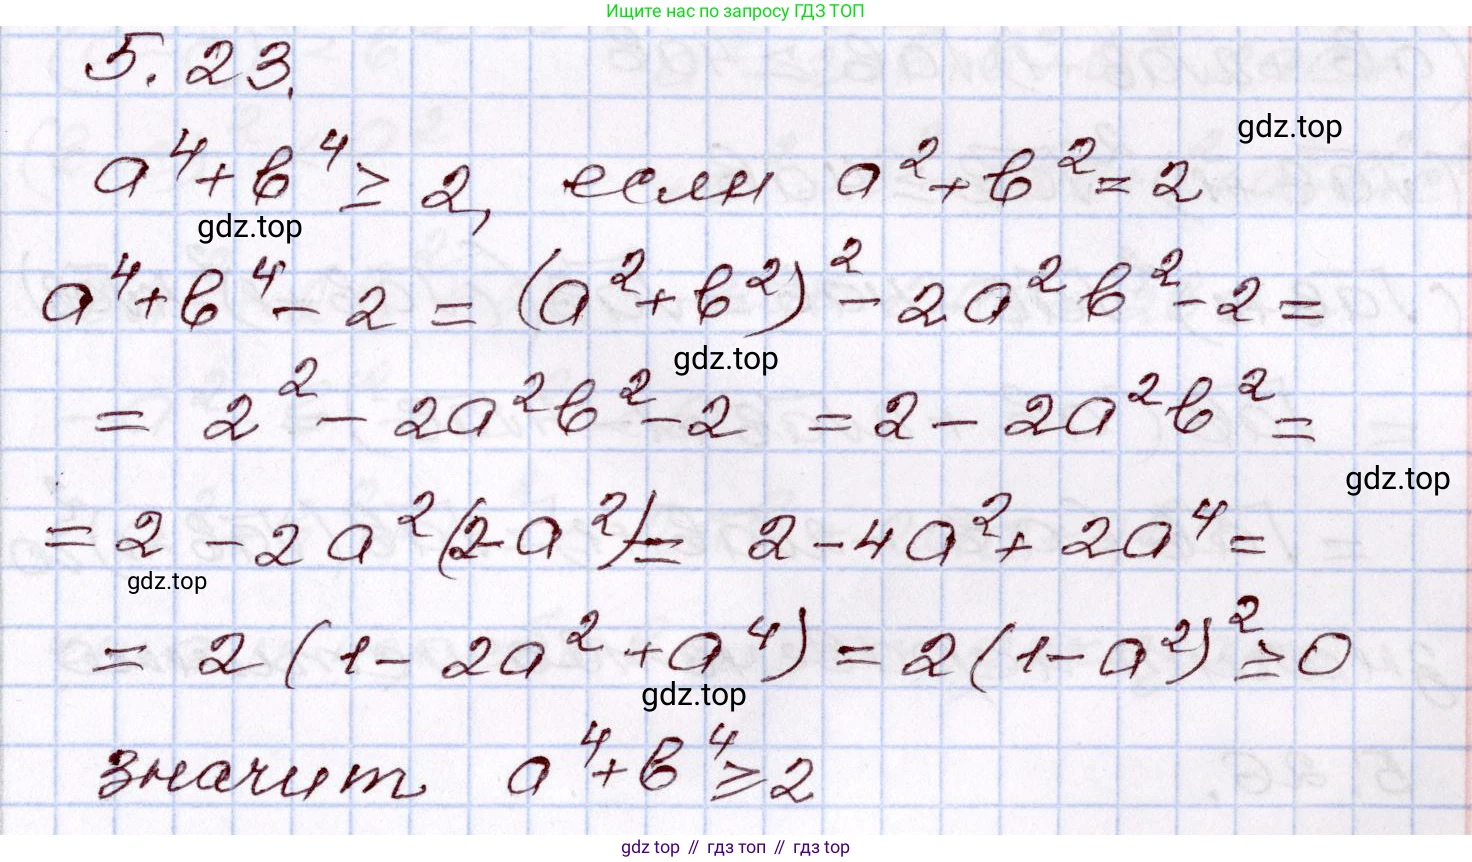 Ищите нас по запросу ГДЗ ТОП
5.23.
gdz.top
a⁴+b⁴ ≥ 2, если a²+b²=2
gdz.top
a⁴+b⁴-2 = (a²+b²)² - 2a²b²-2 =
gdz.top
= 2² - 2a²b²-2 = 2 - 2a²b² =
gdz.top
= 2 - 2a²(2-a²) = 2-4a²+2a⁴ =
gdz.top
= 2 (1-2a²+a⁴) = 2(1-a²)² ≥ 0
gdz.top
значит a⁴+b⁴ ≥ 2
gdz top // гдз топ // гдз top